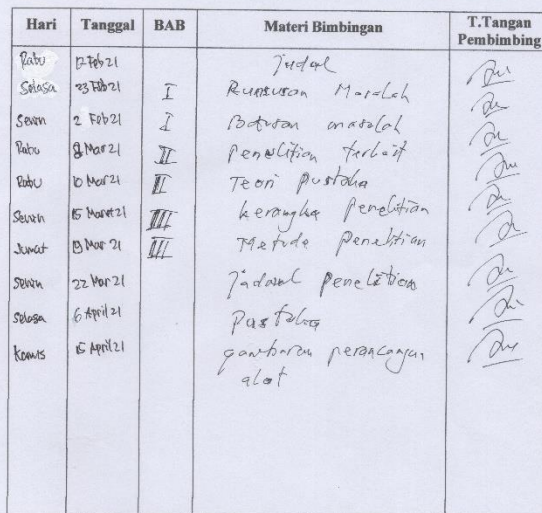 Hari Tanggal BAB Materi Bimbingan T.Tangan Pembimbing
Rabu 17 Feb 21 Judul
Selasa 23 Feb 21 I Rumusan Masalah
Senin 2 Feb 21 I Batasan masalah
Rabu 8 Mar 21 II Penelitian terkait
Rabu 10 Mar 21 II Teori pustaka
Senin 15 Maret 21 III kerangka penelitian
Jumat 19 Mar 21 III Metode penelitian
Senin 22 Mar 21 jadwal penelitian
Selasa 6 April 21 Pustaka
Kamis 15 April 21 gambaran perancangan
alat